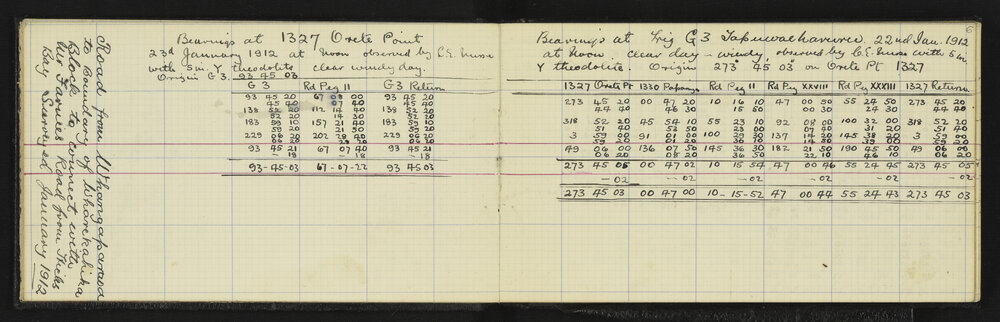 Road from Whangaparaoa
to Boundary of Wharekahika
Block to connect with
Mr Farnies Road from Hicks
Bay Surveyed January 1912
Bearings at 1327 Orete Point
23d January 1912 at Noon observed by C.E.
with 5in. Y theodolite clear windy day.
Origin G3. 93 45 03
G3 Rd Peg 11 G3 Return
93 45 20 67 08 00 93 45 20
45 40 07 40 45 40
138 52 20 112 14 20 138 52 20
52 20 14 30 52 20
183 59 10 157 21 40 183 59 10
59 20 21 50 59 20
229 06 20 202 28 40 229 06 20
06 20 28 40 06 20
93 45 21 67 07 40 93 45 21
-18 -18 -18
93-45-03 67-07-22 93 45 03
6
Bearings at Trig G3 Tapuwaeharuru 22nd Jan. 1912
at Noon clear day - windy, observed by C.E. with 5 in
Y theodolite. Origin 273° 45' 03" on Orete Pt 1327
1327 Orete Pt 1330 Rd Peg 11 Rd Peg XXVIII Rd Peg XXXIII 1327 Return
273 45 20 00 47 20 10 16 10 47 00 50 55 24 50 273 45 20
44 40 46 30 15 50 00 30 24 30 44 40
318 52 20 45 54 10 55 23 10 92 08 00 100 32 00 318 52 20
51 40 53 50 23 00 07 40 31 20 51 40
3 59 00 91 01 00 100 29 30 137 14 20 145 38 20 3 59 00
59 20 01 20 30 00 14 40 39 00 59 20
49 06 00 136 07 50 145 36 30 182 21 50 190 45 50 49 06 00
06 20 08 20 36 50 22 10 46 10 06 20
273 45 05 00 47 02 10 15 54 47 00 46 55 24 45 273 45 05
-02 -02 -02 -02 -02 -02
273 45 03 00 47 00 10-15-52 47 00 44 55 24 43 273 45 03